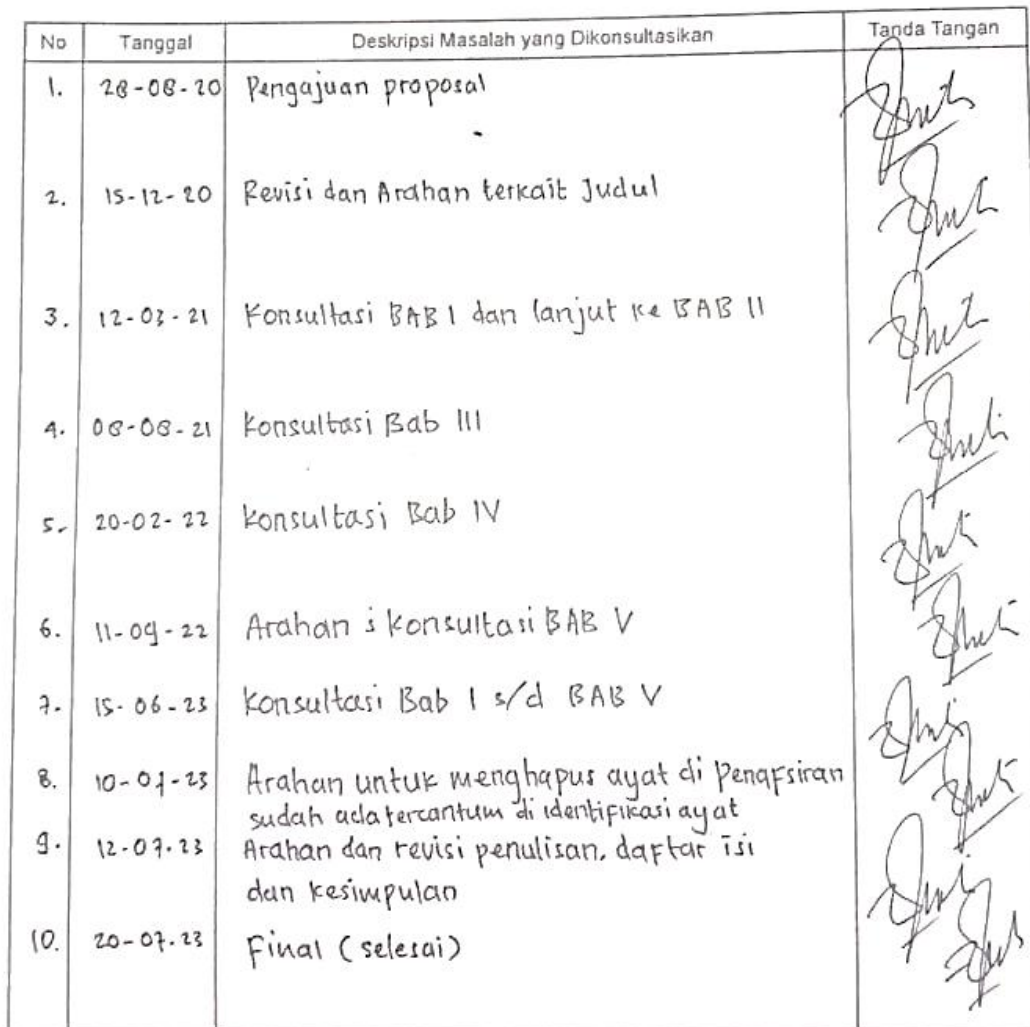 No Tanggal Deskripsi Masalah yang Dikonsultasikan Tanda Tangan
1. 28-08-20 Pengajuan proposal
2. 15-12-20 Revisi dan Arahan terkait Judul
3. 12-03-21 Konsultasi BAB I dan lanjut ke BAB II
4. 08-08-21 Konsultasi Bab III
5. 20-02-22 Konsultasi Bab IV
6. 11-09-22 Arahan & Konsultasi BAB V
7. 15-06-23 Konsultasi Bab I s/d BAB V
8. 10-07-23 Arahan untuk menghapus ayat di Penafsiran
sudah ada tercantum di identifikasi ayat
9. 12-07-23 Arahan dan revisi penulisan, daftar isi
dan kesimpulan
10. 20-07-23 Final (selesai)